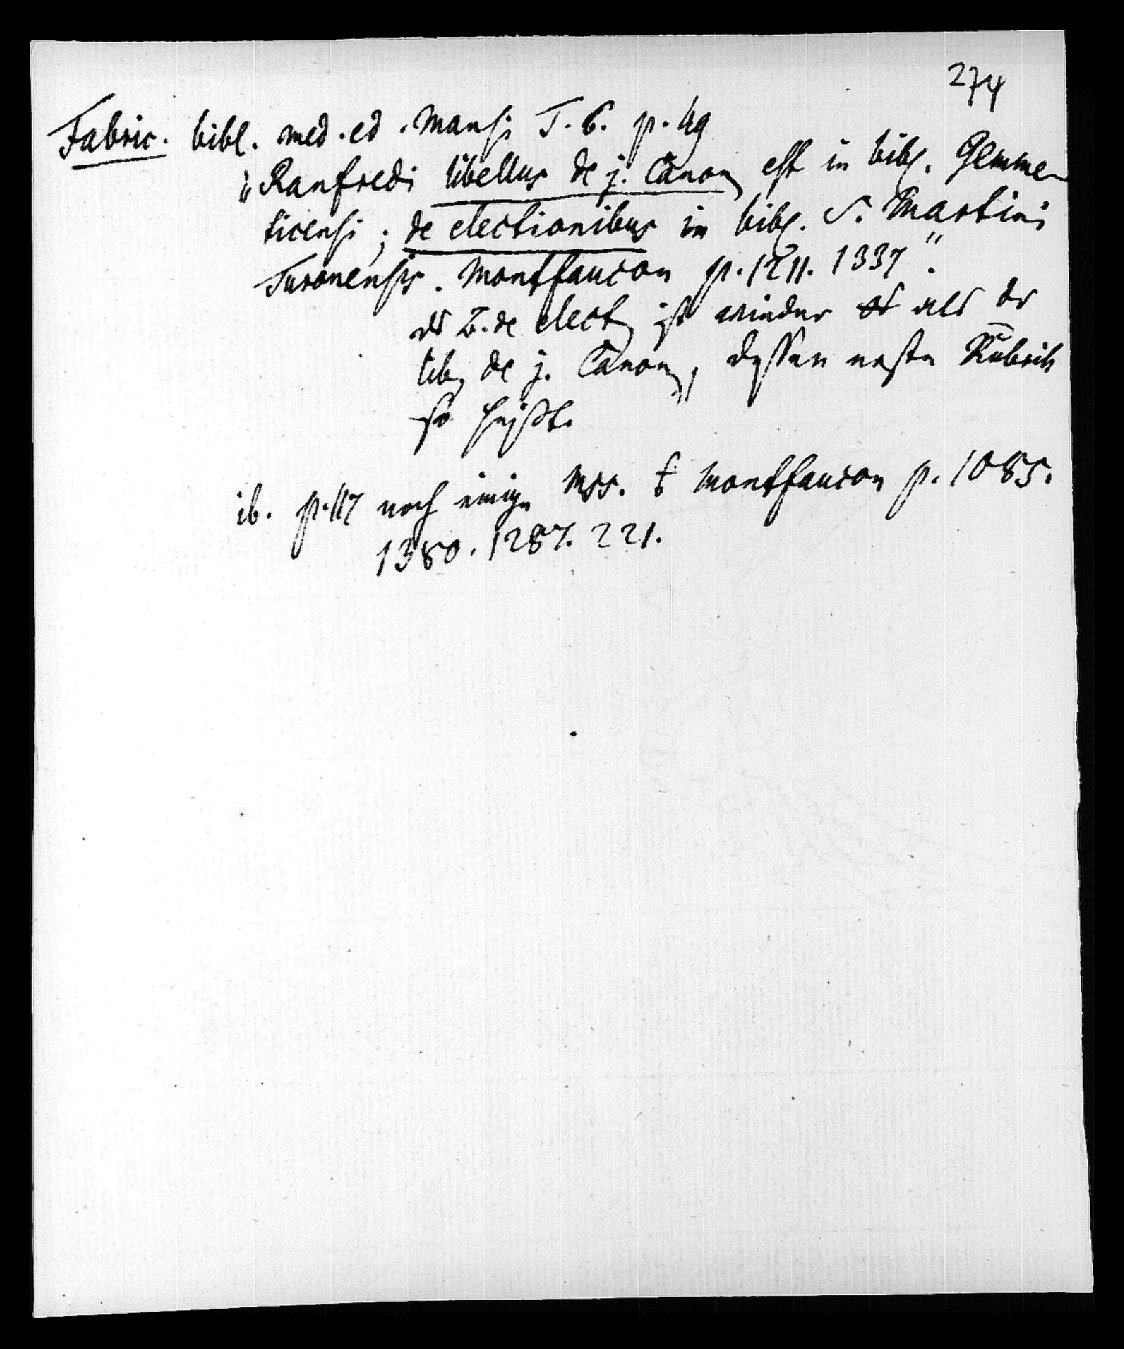 274
Fabric. bibl. med. ed. Mansi T. 6. p. 49
„Ranfredi libellus de j. Canon est in bibl. Gemme-
ticensi; de electionibus in bibl. S. Martini
Turonensis. Montfaucon p. 1211. 1337“.
das B. de elect ist wieder als der
lib de j. Canon, dessen erste Rubrik
so heißt.
ib. p. 117 noch einige Mss. Montfaucon p. 1085.
1380. 1287. 221.